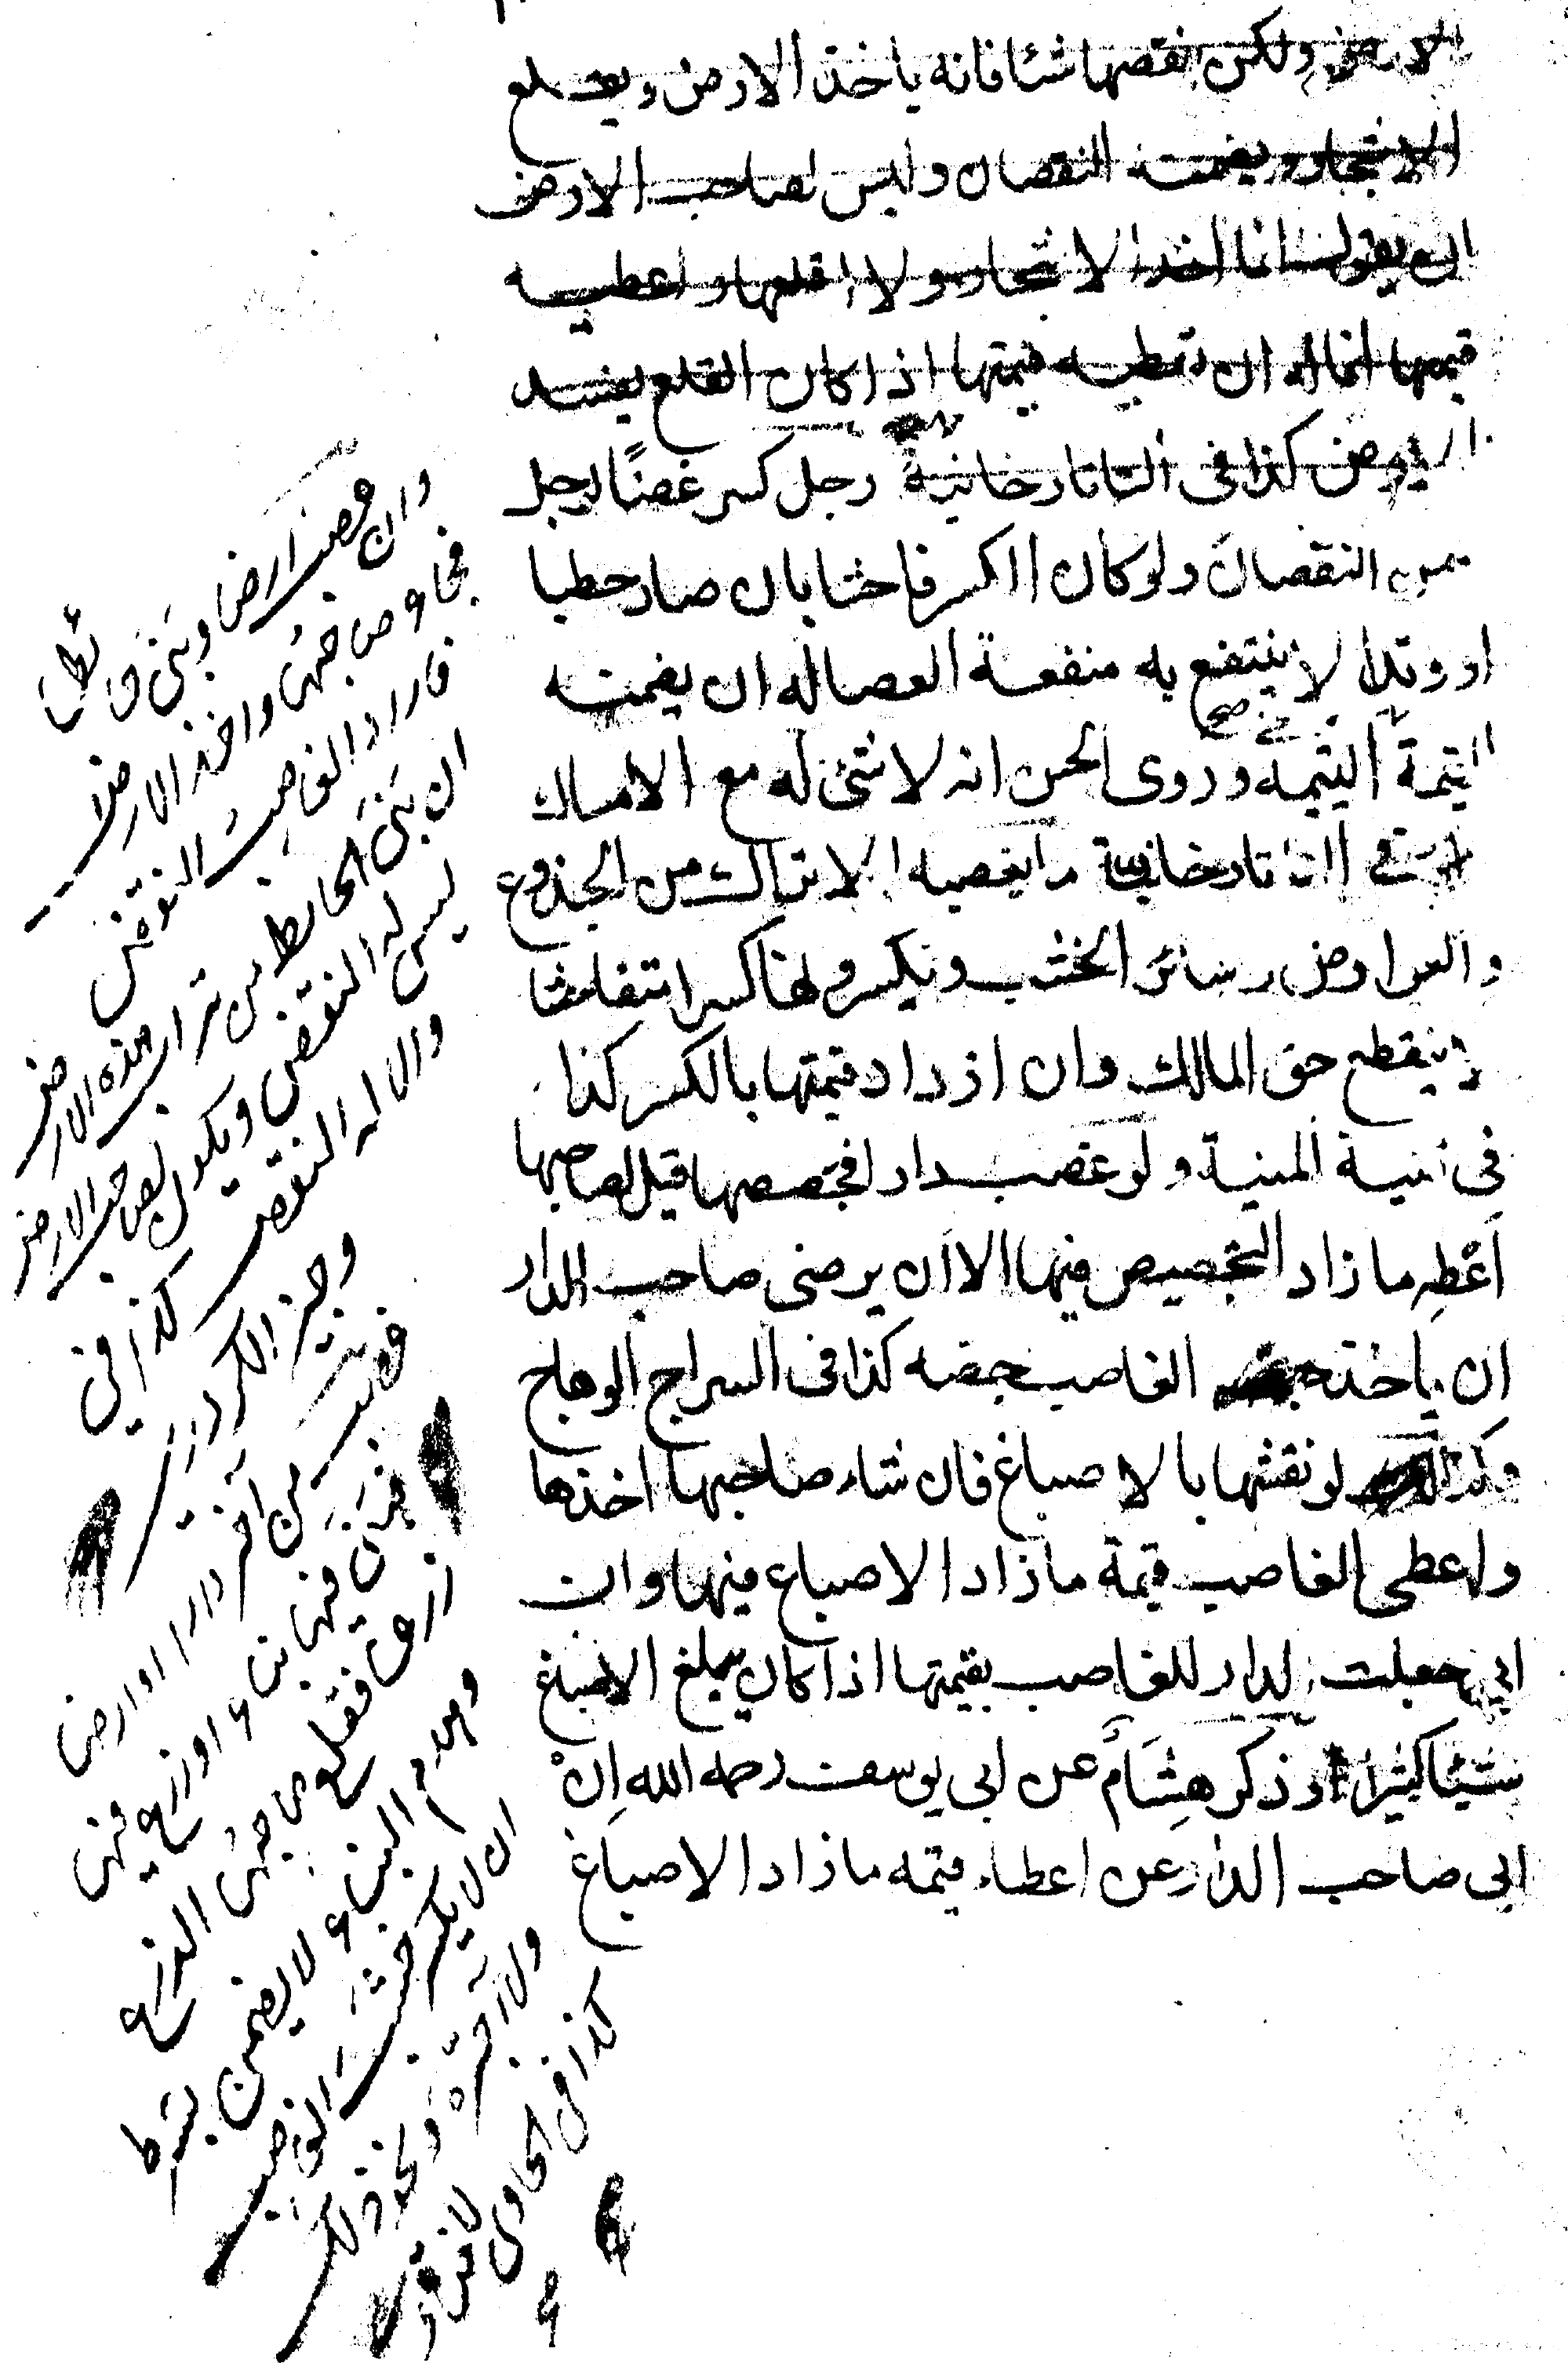 الارض ولكن نقصها شئا فانه ياخذ الارض ويقلع
الاشجار ويضمنه النقصان وليس لصاحب الارض
ان يقول انا اخذ الاشجار ولا اقلعها واعطيه
قيمتها انما له ان يعطيه قيمتها اذا كان القلع يفسد
الارض كذا فى التاتارخانية رجل كسر غصنًا لرجل
يضمن النقصان ولو كان الكسر فاحشا بان صار حطبا
او وتدا لا ينتفع به منفعة العصا له ان يضمنه
اليتيمة وروى الحسن انه لا شئ له مع الامساك
التاتارخانية ما يغصبه الاتراك من الجذوع
والعوارض وسائر الخشب ويكسرونها كسرا متفاحشا
ينقطع حق المالك وان ازداد قيمتها بالكسر كذا
فى قنية المنية ولو غصب دارا فجصصها قيل لصاحبها
أعْطِه ما زاد التجصيص فيها الا ان يرضى صاحب الدار
ان ياخذ الغاصب جصه كذا فى السراج الوهاج
لو نقشها بالاصباغ فان شاء صاحبها اخذها
واعطى الغاصب قيمة ما زاد الاصباغ فيها وان
ابى جعلت الدار للغاصب بقيمتها اذا كان يبلغ الاصباغ
شيئا كثيرا وذكر هِشَامٌ عن ابى يوسف رحمه الله اِنْ
ابى صاحب الدار عن اعطاء قيمه ما زاد الاصباغ
وان غصب ارضا وبنى حائطا
فجاء صاحبها واخذ الارض
فاراد الغاصب النقض
ان بنى الحائط من تراب هذه الارض
ليس له النقض ويكون لصاحب الارض
والا له النقض كذا فى
وجيز الكردرى
غصب من آخر دارا او ارضا
فبنى فيها بناء او زرع فيها
زرعا فقلع صاحبها الزرع
وهدم البناء لا يضمن بشرط
ان لا يكسر خشب الغاصب
ولا آجره ونحو ذلك
كذا فى الحاوى